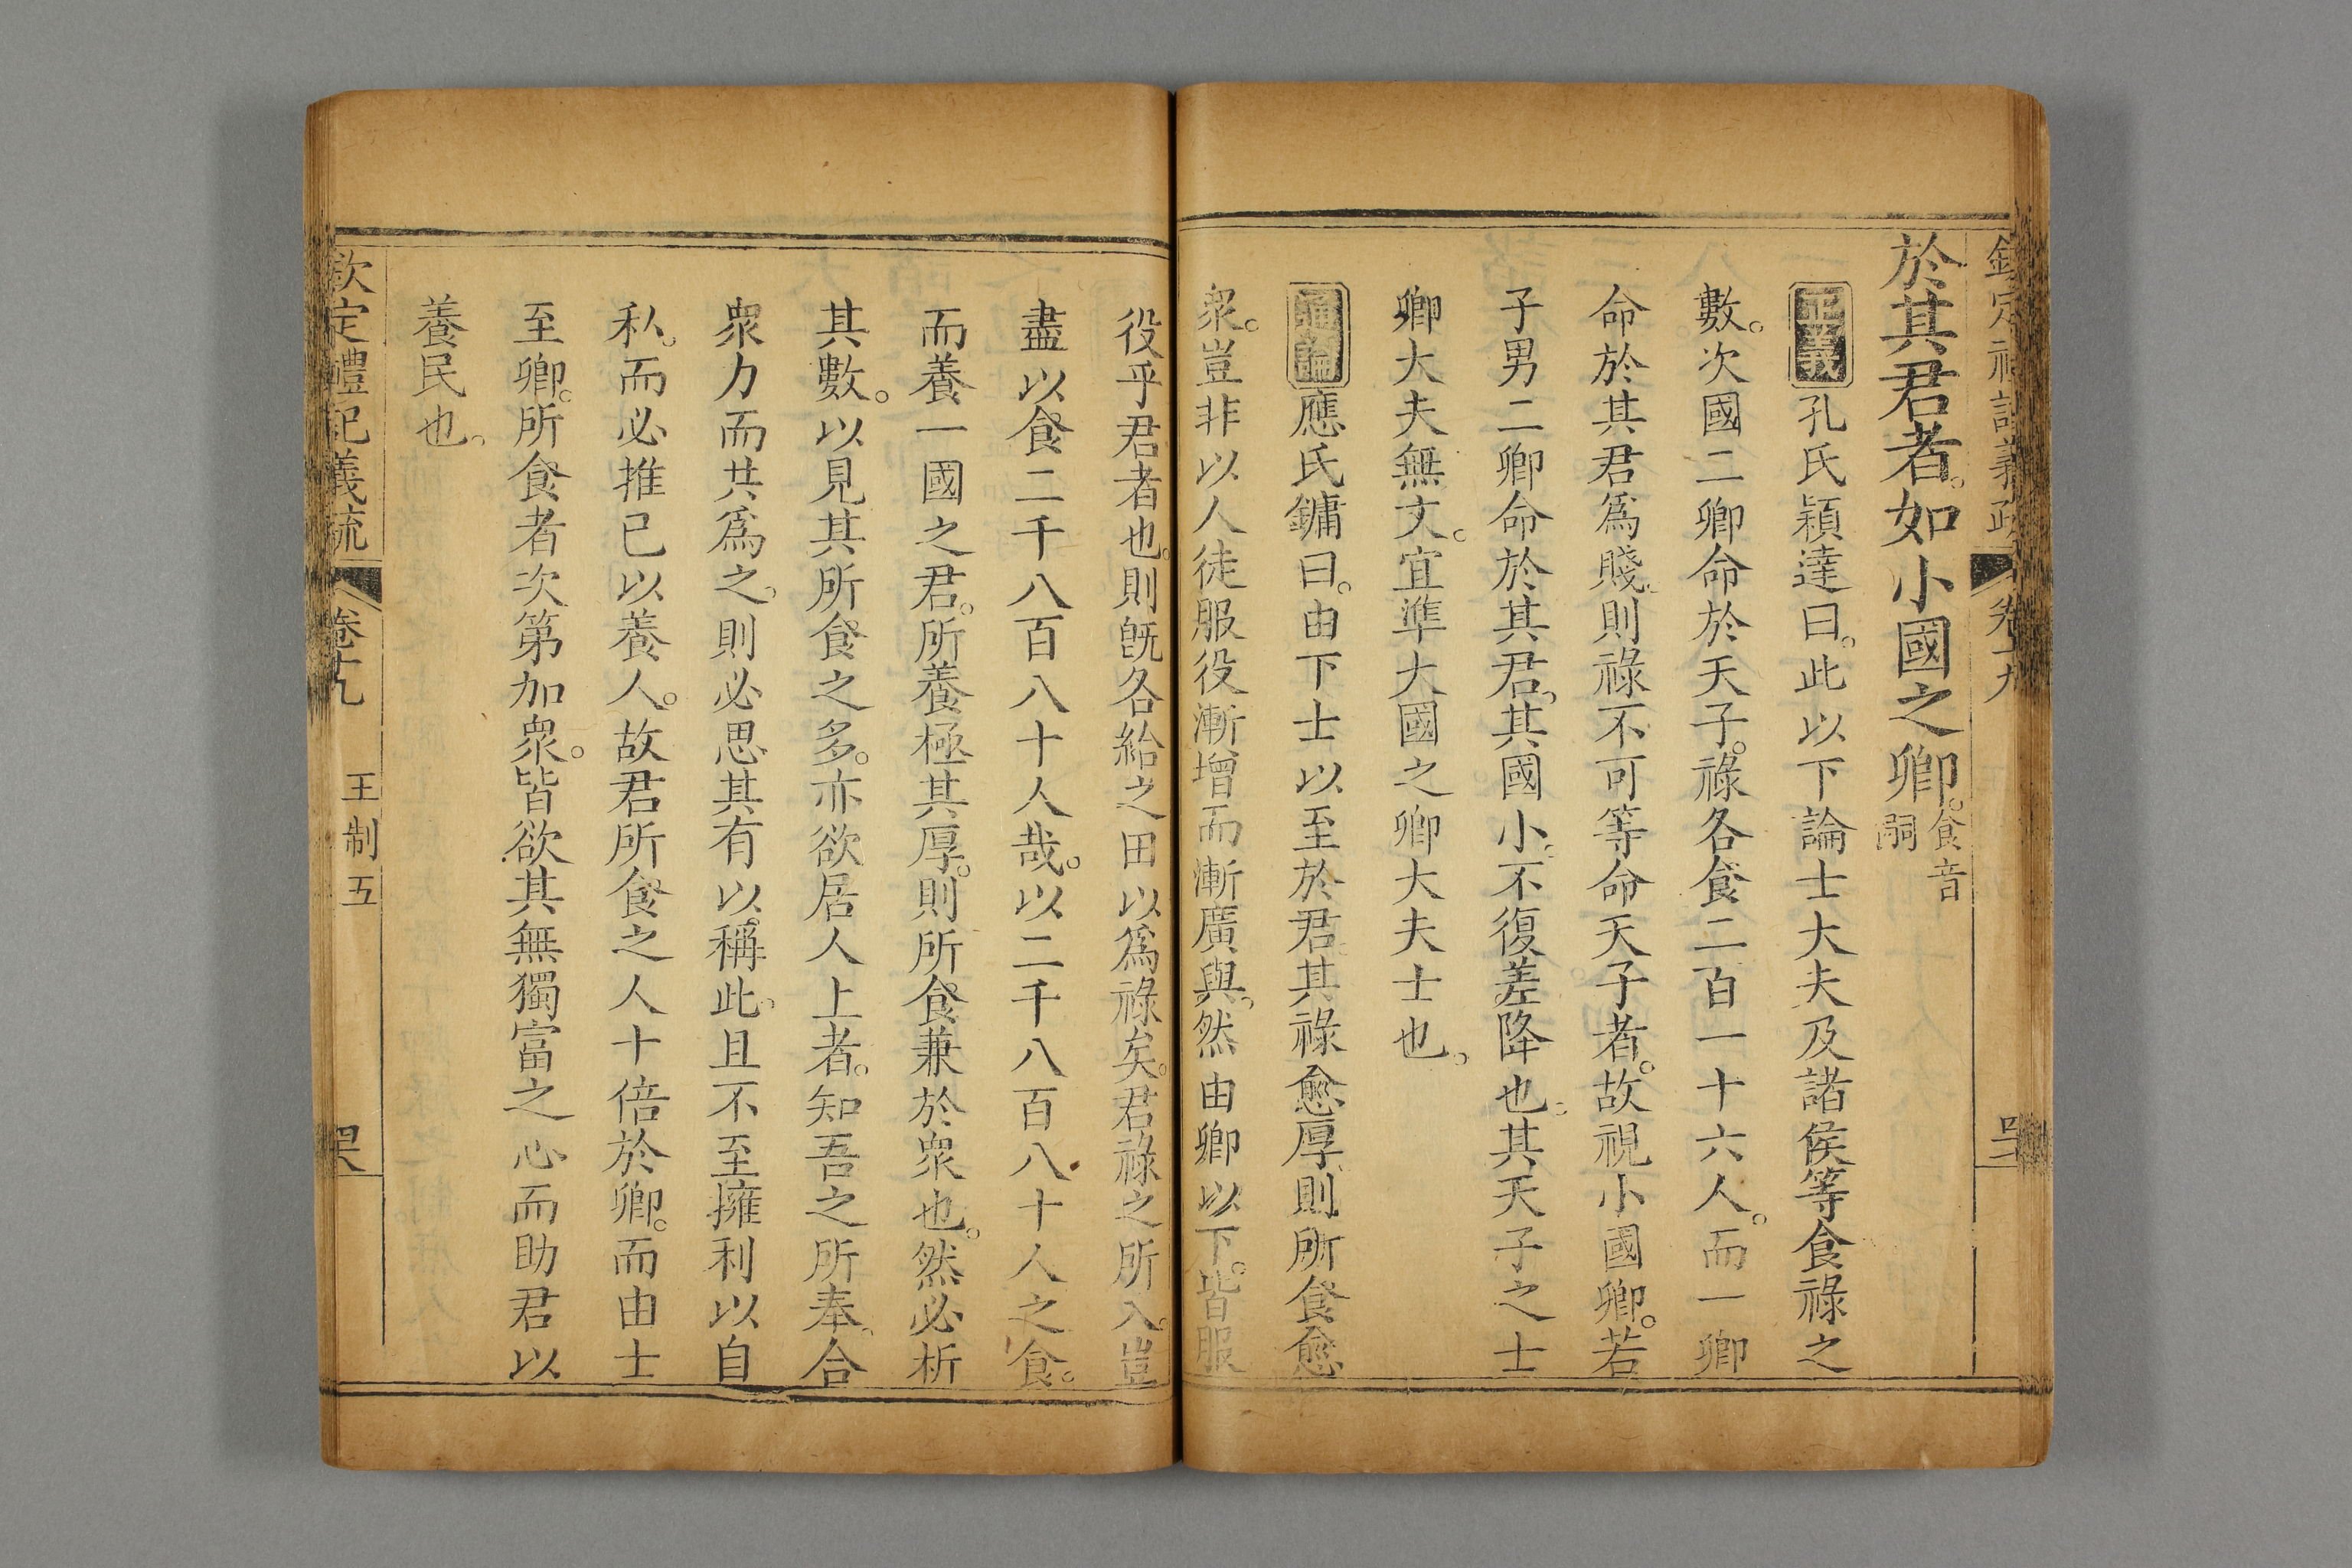 於其君者。如小國之卿。食音嗣
正義孔氏穎達曰。此以下論士大夫及諸侯等食祿之
數。次國二卿命於天子。祿各食二百一十六人。而一卿
命於其君爲賤。則祿不可等命天子者。故視小國卿。若
子男二卿命於其君。其國小。不復差降也。其天子之士
卿大夫無文。宜準大國之卿大夫士也。
通論應氏鏞曰。由下士以至於君。其祿愈厚。則所食愈
衆。豈非以人徒服役漸增而漸廣與。然由卿以下。皆服
役乎君者也。則旣各給之田以爲祿矣。君祿之所入。豈
盡以食二千八百八十人哉。以二千八百八十人之食。
而養一國之君。所養極其厚。則所食兼於衆也。然必析
其數。以見其所食之多。亦欲居人上者。知吾之所奉。合
衆力而共爲之。則必思其有以稱此。且不至擁利以自
私。而必推已以養人。故君所食之人十倍於卿。而由士
至卿。所食者次第加衆。皆欲其無獨富之心而助君以
養民也。
欽定禮記義疏 卷十九 王制五